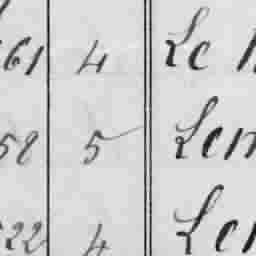 61 4 Le
58 5 Lem
22 4 Len